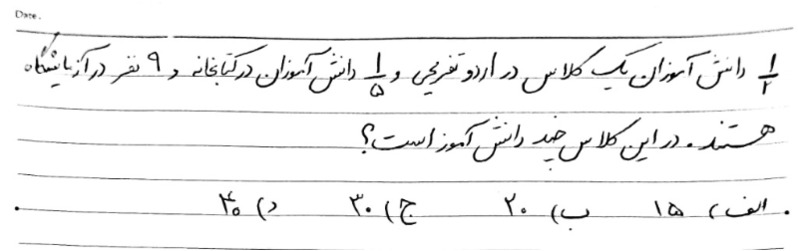 Date.
۱/۲ دانش آموزان یک کلاس در اردو تفریحی و ۱/۵ دانش آموزان در کتابخانه و ۹ نفر در آزمایشگاه
هستند. در این کلاس چند دانش آموز است؟
الف) ۱۵ ب) ۲۰ ج) ۳۰ د) ۴۰